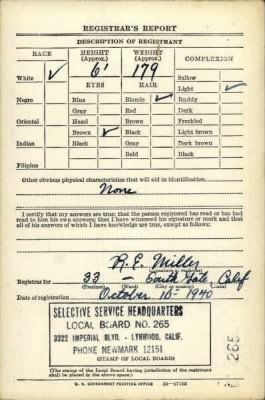 REGISTRAR'S REPORT
DESCRIPTION OF REGISTRANT
RACE HEIGHT (Approx.) WEIGHT (Approx.) COMPLEXION
White ✓ 6' 179 Sallow
EYES HAIR Light ✓
Negro Blue Blonde ✓ Ruddy
Gray Red Dark
Oriental Hazel Brown Freckled
Brown ✓ Black Light brown
Indian Black Gray Dark brown
Bald Black
Filipino
Other obvious physical characteristics that will aid in identification
None
I certify that my answers are true; that the person registered has read or has had
read to him his own answers; that I have witnessed his signature or mark and that
all of his answers of which I have knowledge are true, except as follows:
R. E. Miller
(Signature of registrar)
Registrar for 33 South Gate Calif
(Precinct) (Ward) (City or county) (State)
Date of registration October 16 - 1940
SELECTIVE SERVICE HEADQUARTERS
LOCAL BOARD NO. 265
3322 IMPERIAL BLVD. - LYNWOOD, CALIF.
PHONE NEWMARK 12151
(STAMP OF LOCAL BOARD)
265
(The stamp of the Local Board having jurisdiction of the registrant
shall be placed in the above space.)
U. S. GOVERNMENT PRINTING OFFICE 16—17105